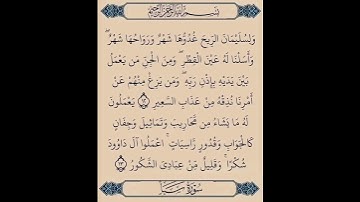 بسم الله الرحمن الرحيم
وَلِسُلَيْمَانَ الرِّيحَ غُدُوُّهَا شَهْرٌ وَرَوَاحُهَا شَهْرٌ ۖ
وَأَسَلْنَا لَهُ عَيْنَ الْقِطْرِ ۖ وَمِنَ الْجِنِّ مَن يَعْمَلُ
بَيْنَ يَدَيْهِ بِإِذْنِ رَبِّهِ ۖ وَمَن يَزِغْ مِنْهُمْ عَنْ
أَمْرِنَا نُذِقْهُ مِنْ عَذَابِ السَّعِيرِ ۝١٢ يَعْمَلُونَ
لَهُ مَا يَشَاءُ مِن مَّحَارِيبَ وَتَمَاثِيلَ وَجِفَانٍ
كَالْجَوَابِ وَقُدُورٍ رَّاسِيَاتٍ ۚ اعْمَلُوا آلَ دَاوُودَ
شُكْرًا ۚ وَقَلِيلٌ مِّنْ عِبَادِيَ الشَّكُورُ ۝١٣
سُورَةُ سَبَإٍ